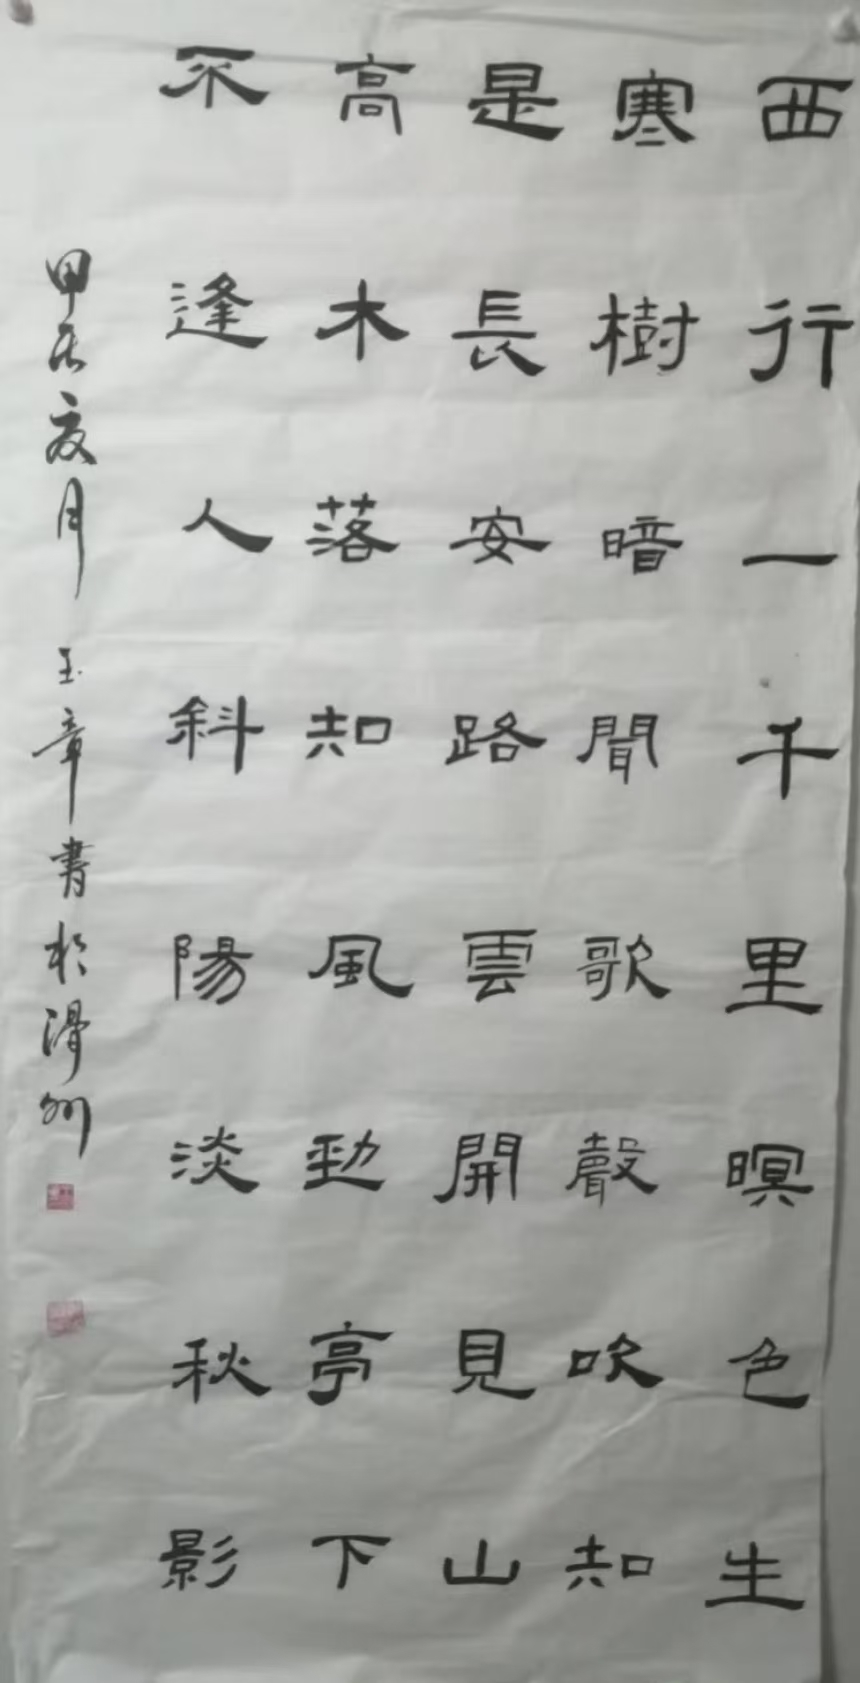 西行一千里暝色生
寒樹暗聞歌聲吹知
是長安路雲開見山
高木落知風勁亭下
不逢人斜陽淡秋影
甲辰亥月 玉章書於滑州